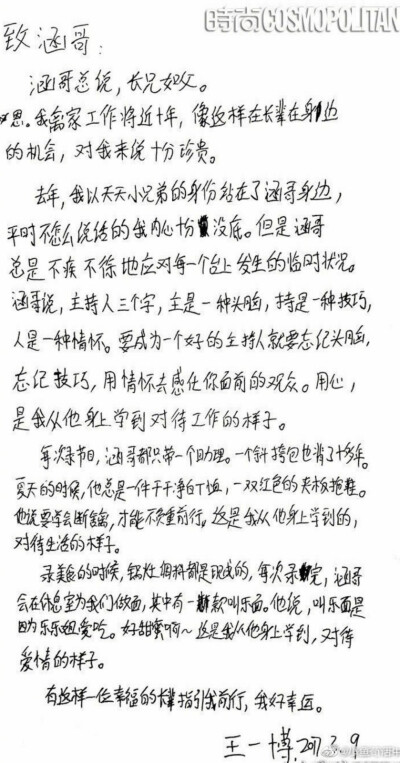 時尚COSMOPOLITAN
致涵哥：
涵哥总说，长兄如父。
恩。我离家工作将近十年，像这样在长辈在身边
的机会，对我来说十分珍贵。
去年，我以天天小兄弟的身份站在了涵哥身边，
平时不怎么说话的我内心十分没底。但是涵哥
总是不疾不徐地应对每一个台上发生的临时状况。
涵哥说，主持人三个字，主是一种头脑，持是一种技巧，
人是一种情怀。要成为一个好的主持人就要忘记头脑，
忘记技巧，用情怀去感化你面前的观众。用心，
是我从他身上学到对待工作的样子。
每次录节目，涵哥都只带一个助理。一个斜挎包也背了十多年。
夏天的时候，他总是一件干干净白T恤，一双红色的夹板拖鞋。
他说要学会断舍离，才能不负重前行。这是我从他身上学到的，
对待生活的样子。
录美食的时候，锅灶调料都是现成的，每次录完，涵哥
会在休息室为我们做面，其中有一款叫乐面。他说，叫乐面是
因为乐乐姐爱吃。好甜蜜啊～这是我从他身上学到，对待
爱情的样子。
有这样一位幸福的长辈指引我前行，我好幸运。
王一博 2017.3.9